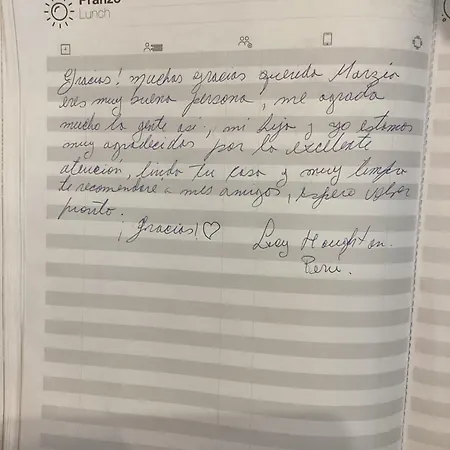 Pranzo
Lunch
Gracias! muchas gracias querida Marzia
eres muy buena persona, me agrada
mucho la gente asi., mi hija y yo estamos
muy agradecidas por la excelente
atencion, linda tu casa y muy limpia
te recomendare a mis amigos, espero volver
pronto.
¡Gracias!♡ Lucy Houghton.
Perú.